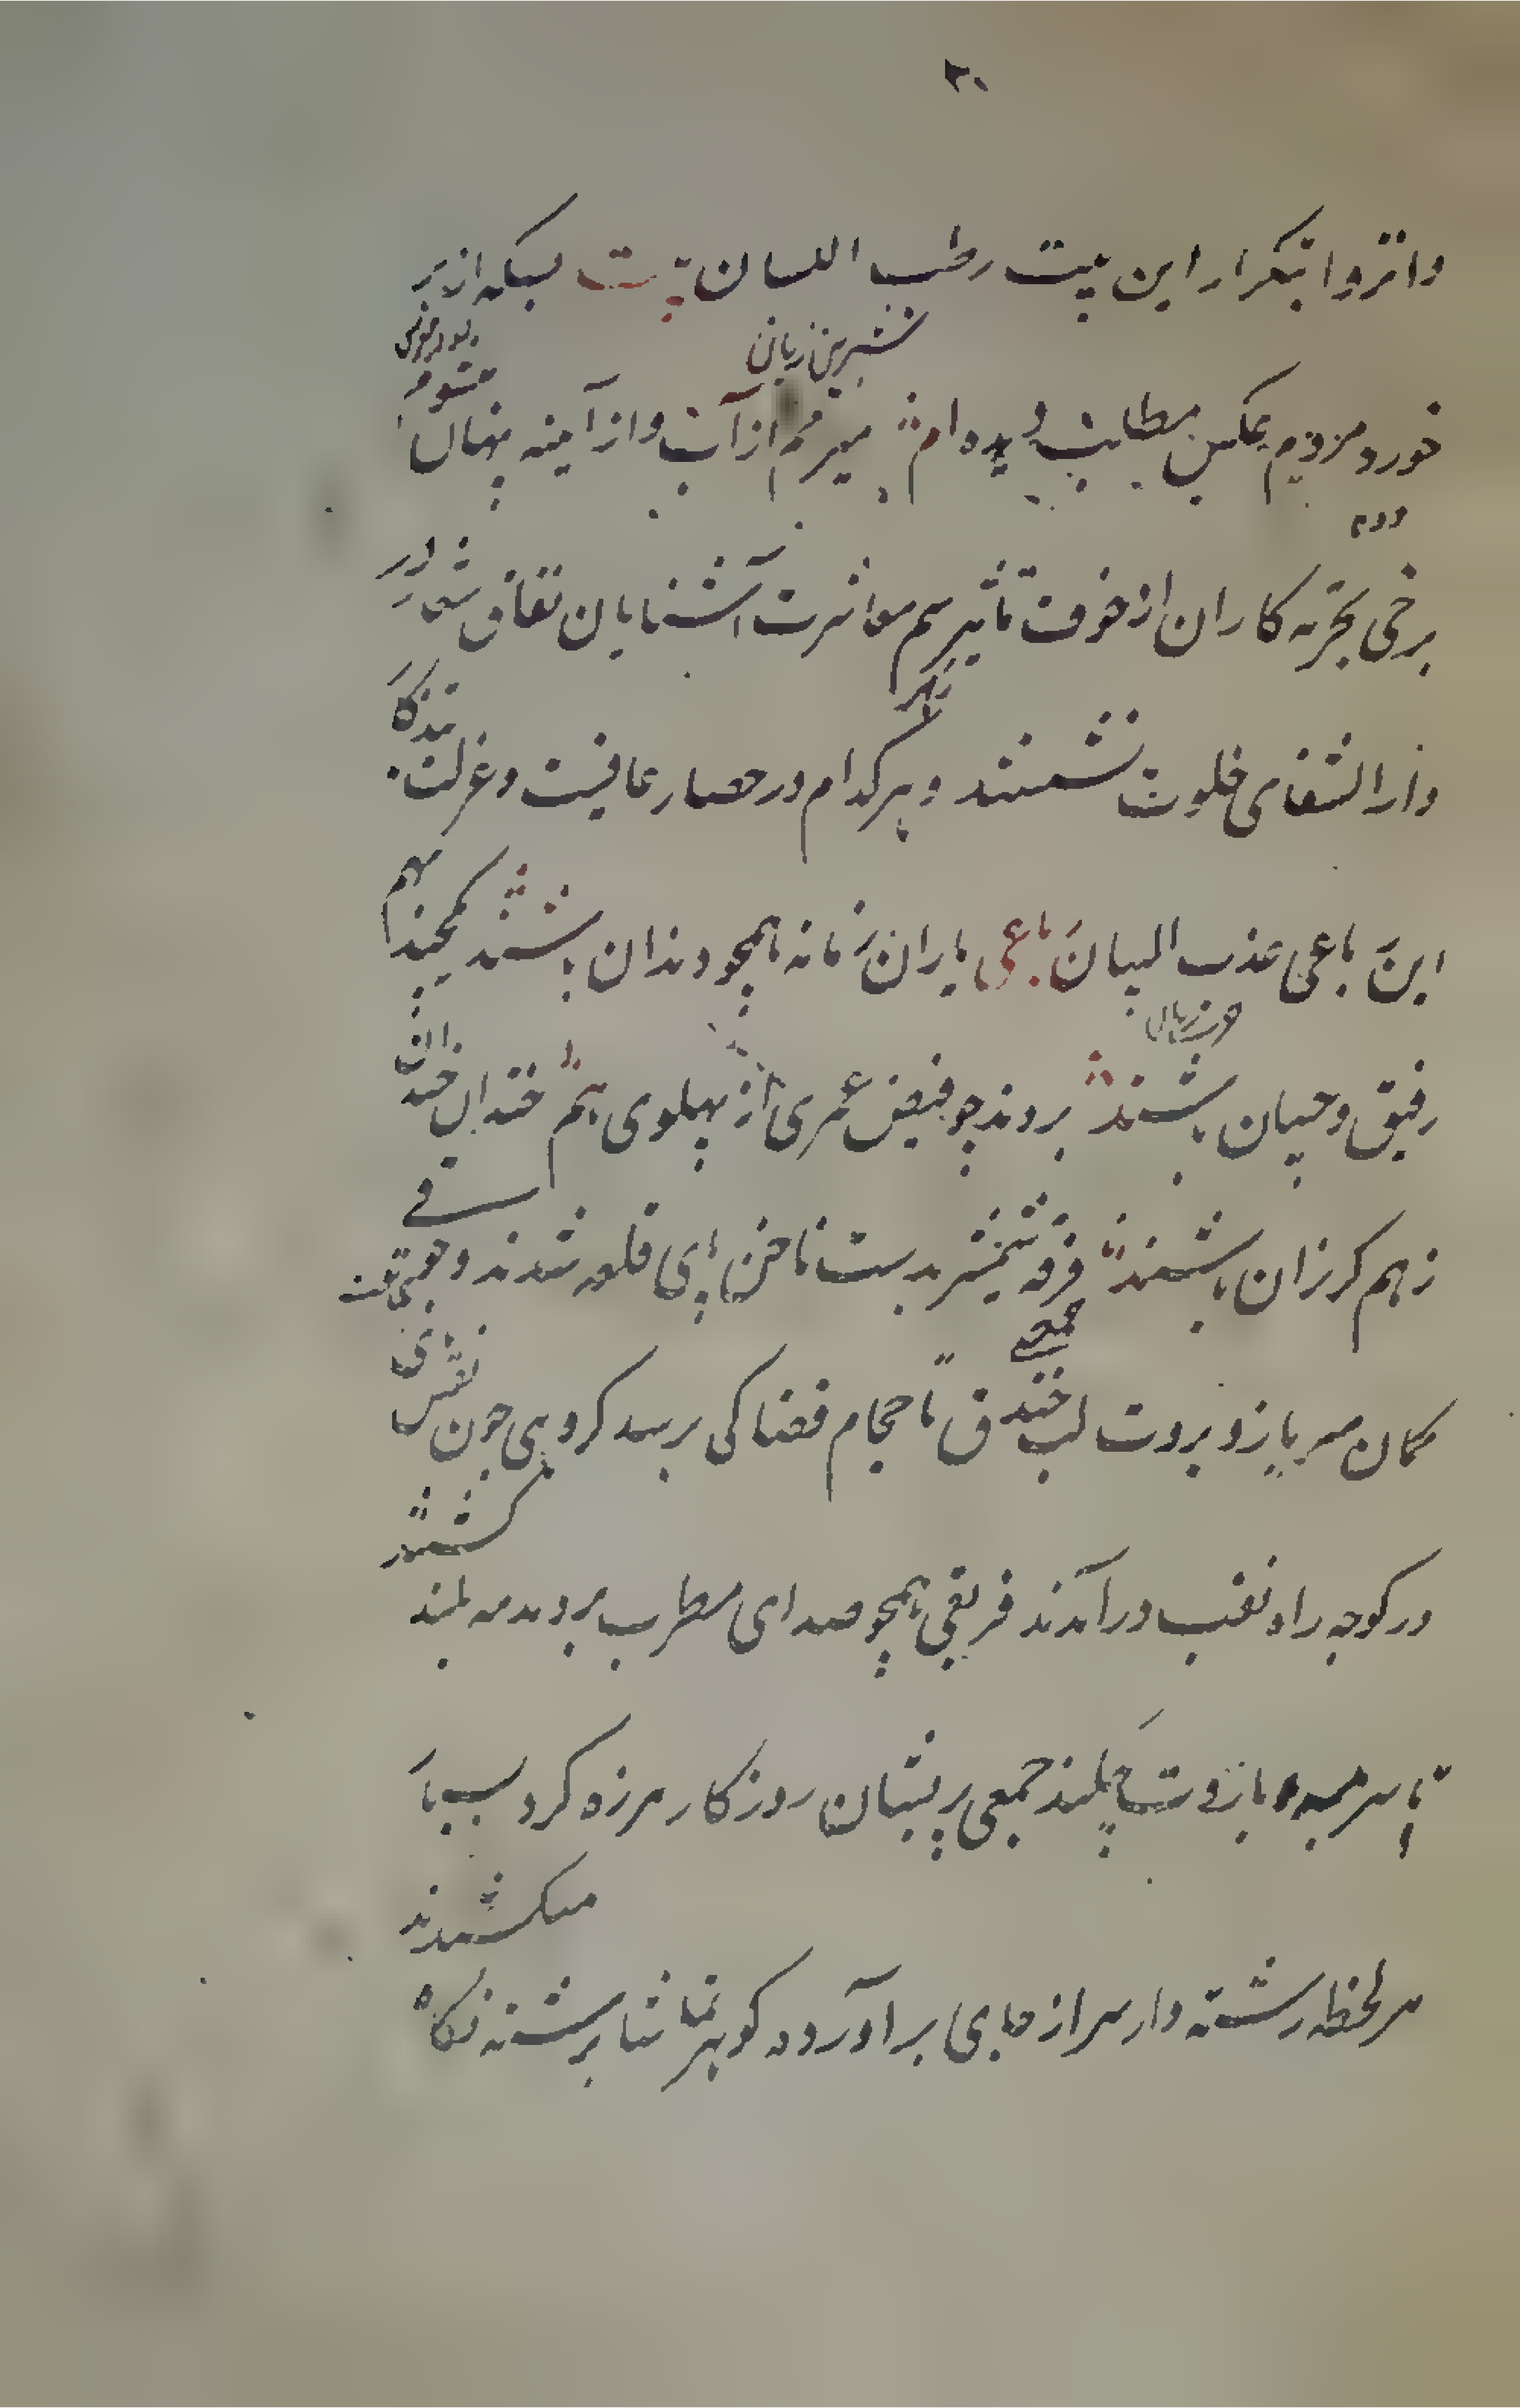 ۳۰
وانزوا بتکرار این بیت رطب اللسان بیت بسکه از بر
شیرین زبان
خورد مردم عکس مطلب دیده ام میرمم از آب و از آینه پنهان
میشوم
دوم
برخی تجربه کاران از خوف تاثیر سم معاشرت آشنایان نفاق شعار در
زهر
دار الشفای خلوت نشستند و هر کدام در حصار عافیت و عزلت
این رباعی عذب البیان رباعی یاران زمانه همچو دندان باشند کمچیند
بهم
خوش زبان
رفیق و چسپان باشند بروند چو فیض عمری از پهلوی هم خندان خندان
ز هم کرزان باشند فرقه شمشیر بدست ناخن پای قلعه شدند و جوقی
جمعی
کمان سر بازو بروت لب خندق تا حجام قضا کی برسد کروهی چون نقش
در کوچه راه نقب درآمدند فریقی همچو صدای مطرب بردمدمه بلند
کشتند
تا سر بازوت چلمند جمعی پریشان روزکار هرزه کرد سیبا
میکشیدند
هر لحظه رشته وار سر از جای برآورده کوهر تماشا برشته نکاه